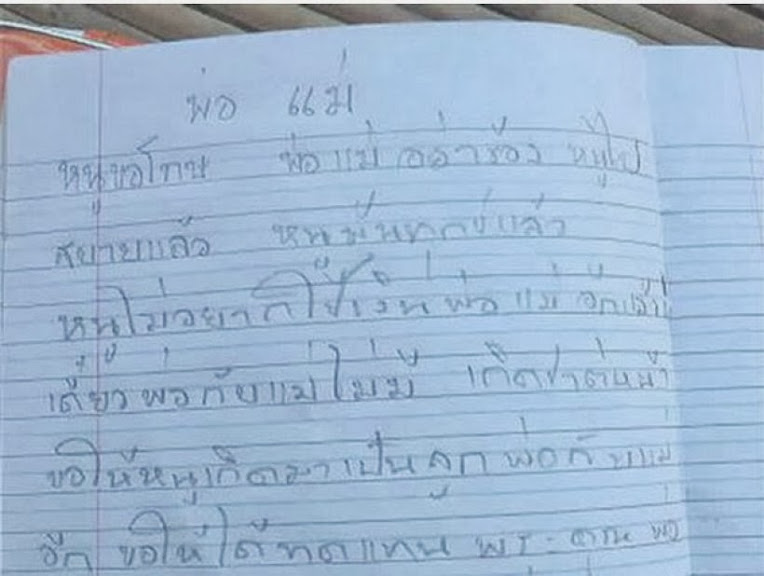 พ่อ แม่
หนูขอโทษ พ่อแม่ อย่าร้อง หนูไป
สบายแล้ว หนูมันทุกข์แล้ว
หนูไม่อยากใช้เงินพ่อแม่ อีกแล้ว
เดี๋ยวพ่อกับแม่ไม่มี เกิดชาติหน้า
ขอให้หนูเกิดมาเป็นลูกพ่อกับแม่
อีก ขอให้ได้ทดแทน พระคุณ พ่อ